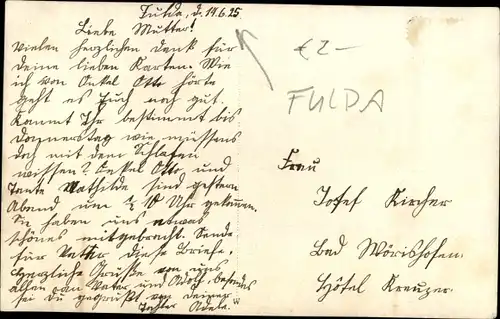 Fulda, d. 14.6.25.
Liebe Mutter!
Vielen herzlichen Dank für
deine lieben Karten. Wie
ich von Onkel Otto hörte
geht es Euch noch gut.
Kommt Ihr bestimmt bis
Donnerstag wie müssens
doch mit dem Schlafen
wissen? Onkel Otto und
Tante Mathilde sind gestern
Abend um ½ 10 Uhr gekommen.
Sie haben uns etwas
schönes mitgebracht. Sende
für Vater diese Briefe.
Herzliche Grüsse von uns
allen an Vater und Adolf, besonders
sei du gegrüßt von deiner
Tochter Adele.
€2-
FULDA
Frau
Josef Kircher
Bad Wörishofen.
Hôtel Kreuzer.